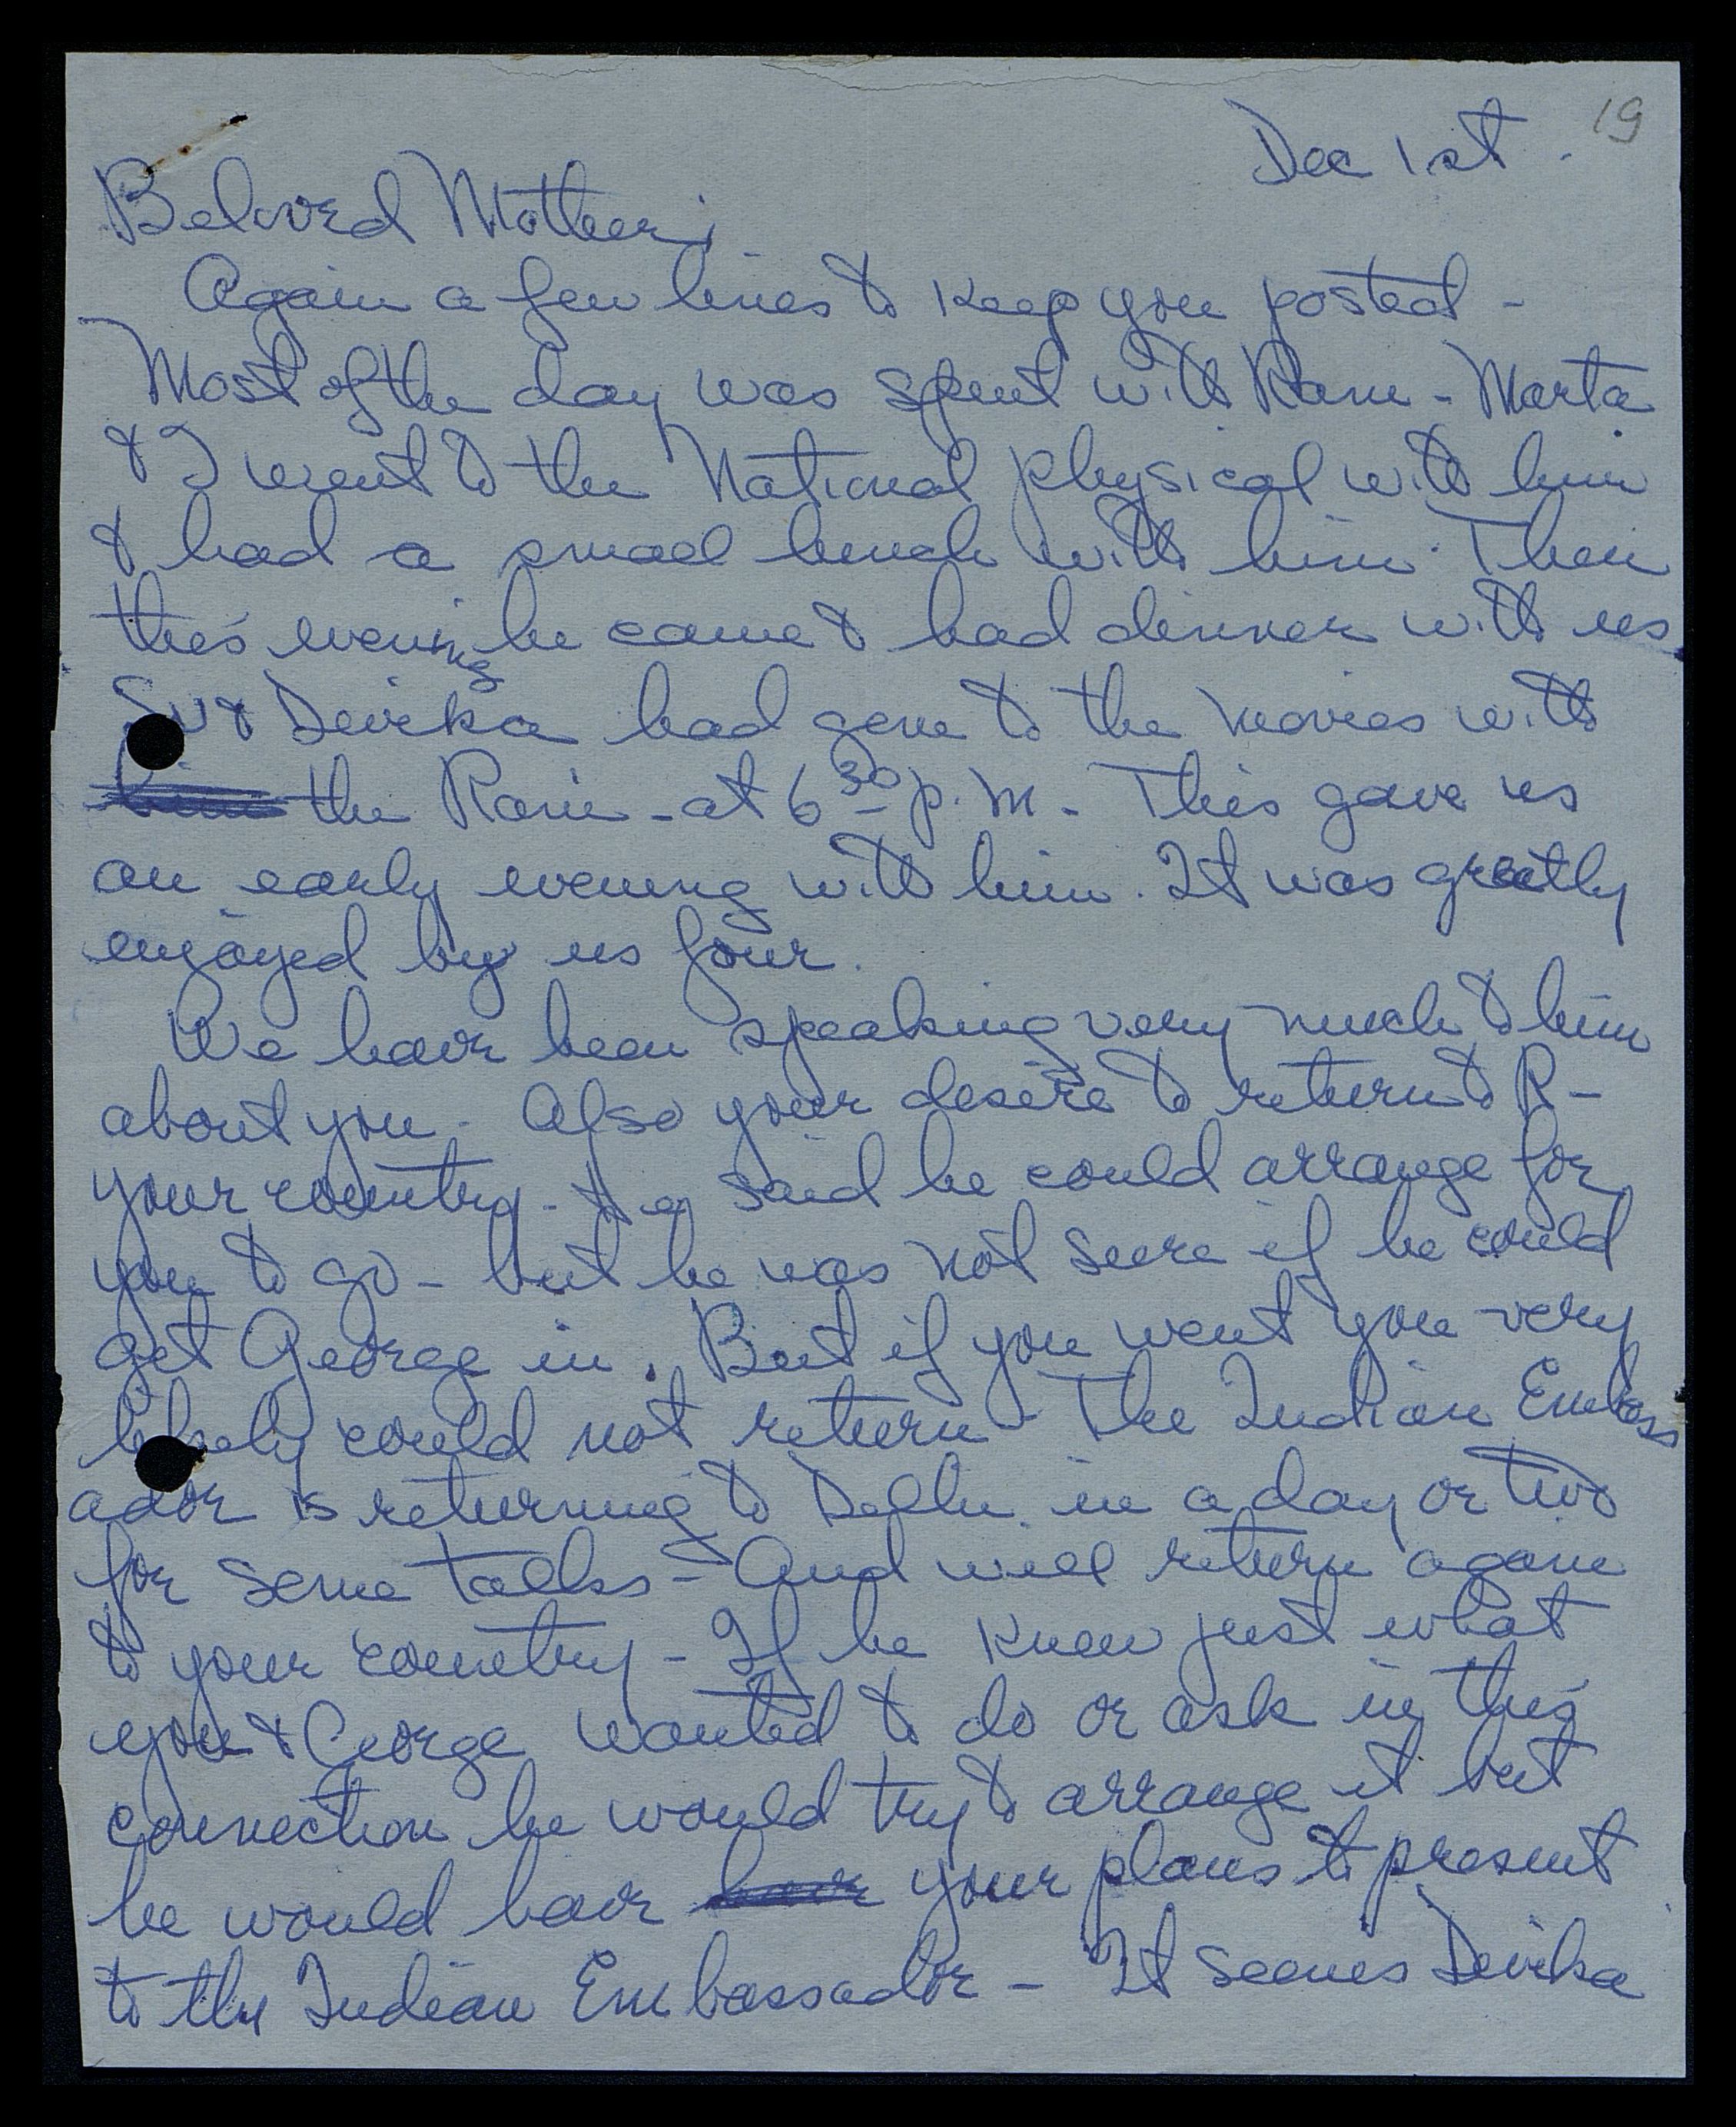 19
Dec 1st.
Beloved Mother;
Again a few lines to keep you posted -
Most of the day was spent with - Marta
& I went to the National physical with him
& had a small lunch with him. Then
this evening he came & had dinner with us
Sv & Devika had gone to the movies with
him the Rani - at 6 30 p.m. - This gave us
an early evening with him. It was greatly
enjoyed by us four.
We have been speaking very much to him
about you - Also your desire to return to R -
your country - said he could arrange for
you to go - but he was not sure if he could
get George in. But if you went you very
likely could not return - The Indian Embass
ador is returning to Delhi in a day or two
for some talks - And will return again
to your country - If he knew just what
you & George wanted to do or ask in this
connection he would try to arrange it but
he would have have your plans to present
to the Indian Embassador - It seems Devika